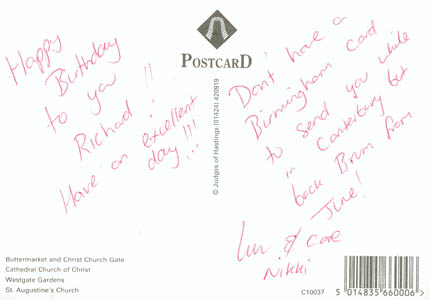 Happy
Birthday
to you
Richard!!
Have an excellent
day!!!
POSTCARD
© Judges of Hastings (01424) 420919
Don't have a
Birmingham card
to send you while
in Canterbury but
back Brum from
June!
Luv & Care
Nikki
Buttermarket and Christ Church Gate
Cathedral Church of Christ
Westgate Gardens
St. Augustine's Church
C10037
5 014835 660006 >